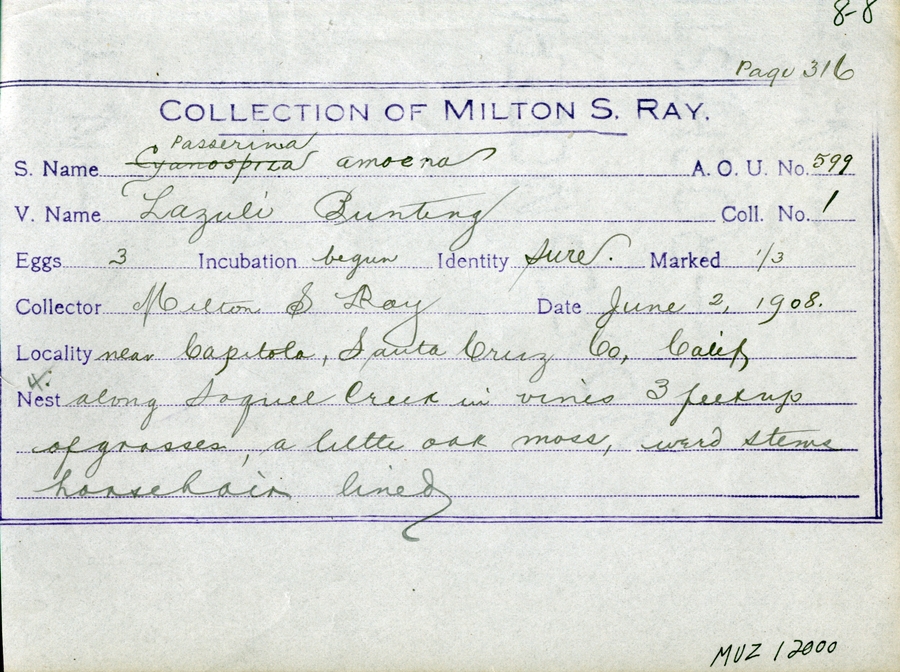 8-8
Page 316
COLLECTION OF MILTON S. RAY.
Passerina
S. Name Cyanospiza amoena A. O. U. No. 599
V. Name Lazuli Bunting Coll. No. 1
Eggs 3 Incubation begun Identity sure. Marked 1/3
Collector Milton S Ray Date June 2, 1908.
Locality near Capitola, Santa Cruz Co, Calif
4.
Nest along Soquel Creek in vines 3 feet up
of grasses, a little oak moss, weed stems
horsehair lined
MVZ 12000